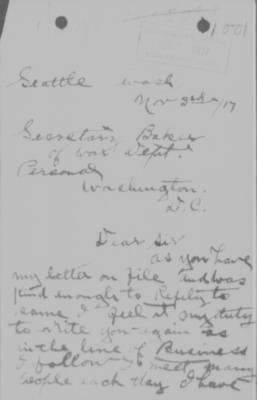 Seattle Wash
Nov 23rd/17
Secretary Baker
of War Dept.
Personal
Washington.
D.C.
Dear Sir
as you have
my letter on file and was
kind enough to Reply to
same I feel at my duty
to write you again as
in the line of Business
I follow I meet many
people each day I have